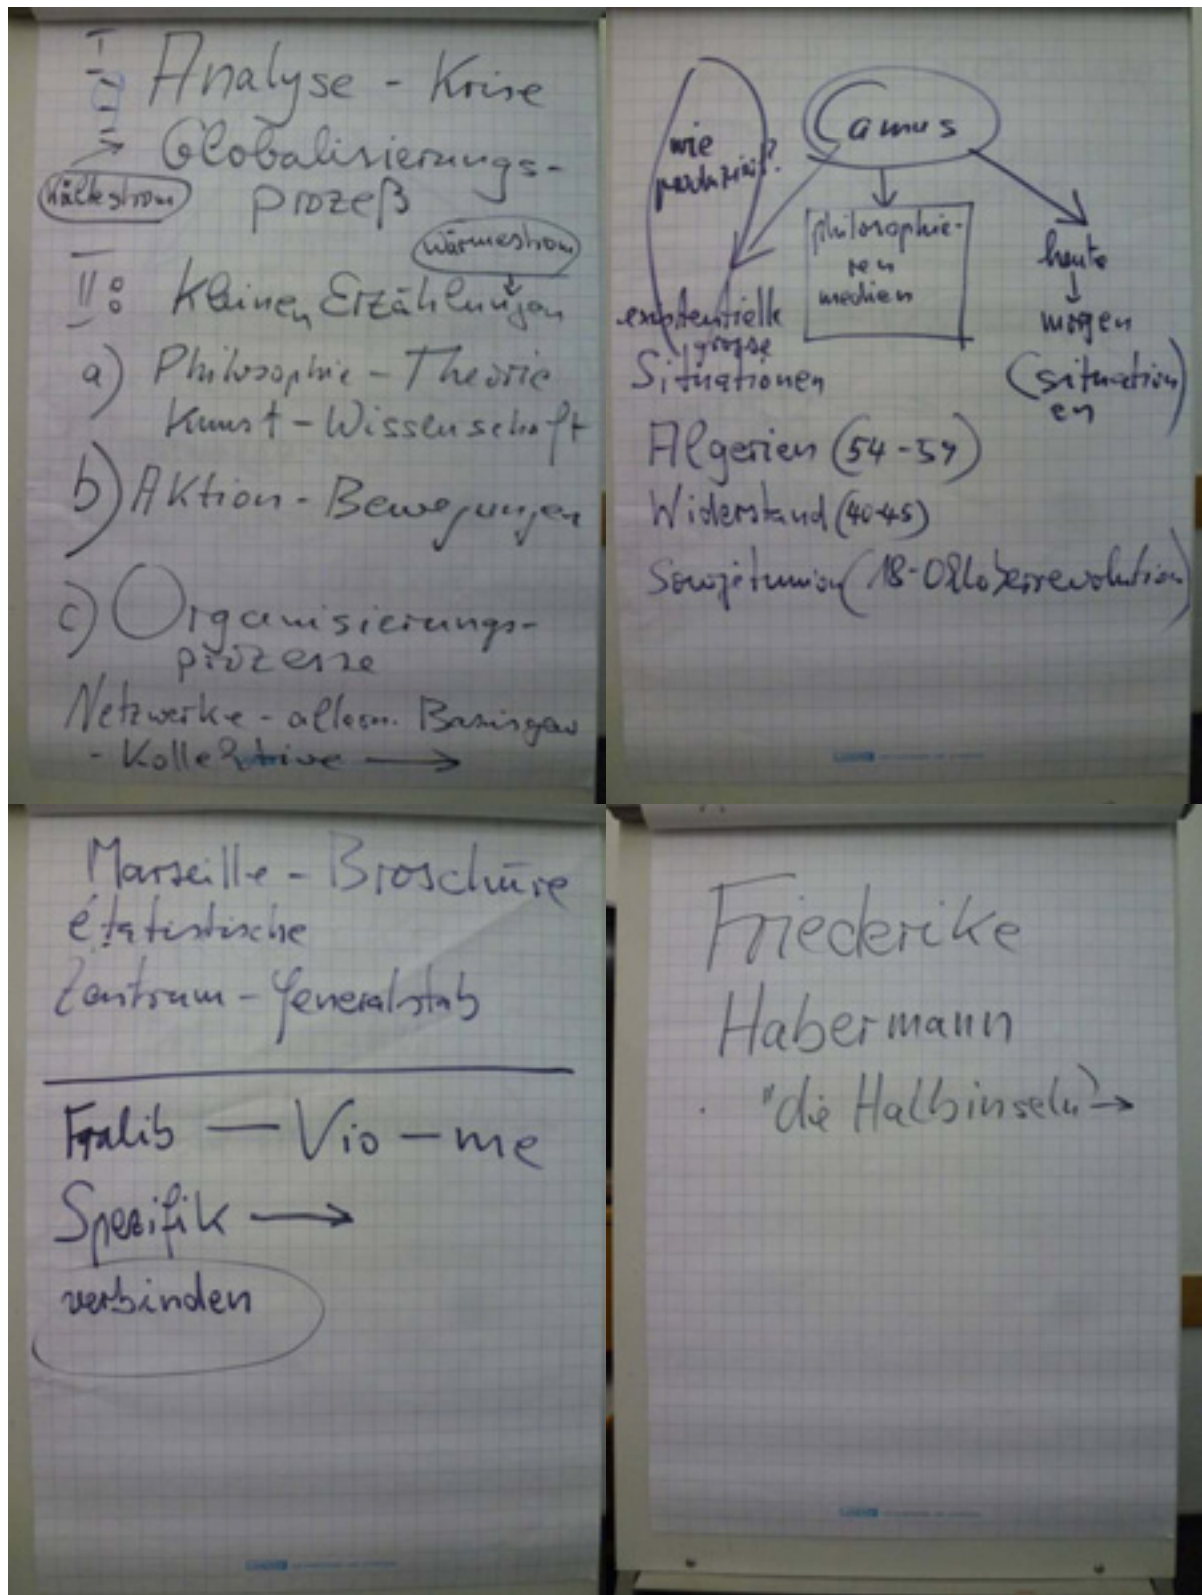 I
Analyse - Krise
Globalisierungs-
prozeß
Kältestrom
Wärmestrom
II:
Kleinen Erzählungen
a) Philosophie - Theorie
Kunst - Wissenschaft
b) Aktion - Bewegungen
c) Organisierungs-
prozesse
Netzwerke -
- Kollektive →
Camus
wie
produziert?
philosophie-
ren
medien
heute
↓
morgen
(situation
en)
existentielle
grosse
Situationen
Algerien (54-54)
Widerstand (40-45)
Sowjetunion (18-Oktoberrevolution)
Marseille - Broschüre
étatistische
Zentrum - Generalstab
Fralib — Vio - me
Spezifik →
verbinden
Friederike
Habermann
"die Halbinseln" →